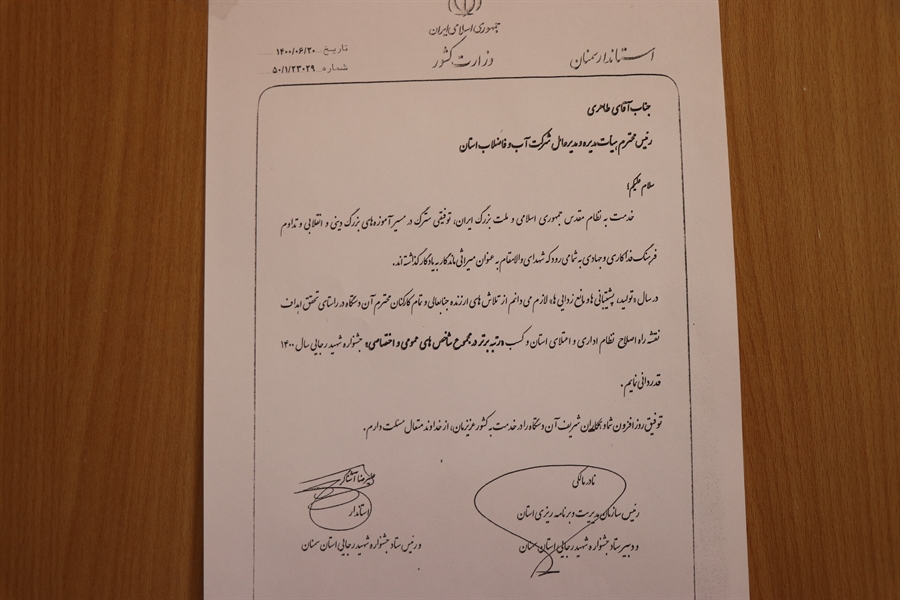 جمهوری اسلامی ایران
وزارت کشور
استاندار سمنان
تاریخ ۱۴۰۰/۰۶/۲۰
شماره ۵۰/۱/۲۳۰۲۹
جناب آقای طاهری
رئیس محترم هیات مدیره و مدیرعامل شرکت آب و فاضلاب استان
سلام علیکم؛
خدمت به نظام مقدس جمهوری اسلامی و ملت بزرگ ایران، توفیقی سترگ در مسیر آموزه های بزرگ دینی و انقلابی و تداوم
فرهنگ فداکاری و جهادی به شمامی رود که شهدای والامقام به عنوان میراثی ماندگار به یادگار گذاشته اند.
در سال «تولید، پشتیبانی ها و مانع زدایی ها، لازم می دانم از تلاش های ارزنده جنابعالی و تمام کارکنان محترم آن دستگاه در راستای تحقق اهداف
نقشه راه اصلاح نظام اداری و اعتلای استان و کسب «رتبه برتر در مجموع شاخص های عمومی و اختصاصی» جشنواره شهید رجایی سال ۱۴۰۰
قدردانی نمایم.
توفیق روزافزون شما و همکاران شریف آن دستگاه را در خدمت به کشور عزیزمان، از خداوند متعال مسئلت دارم.
نادر مالکی
رئیس سازمان مدیریت و برنامه ریزی استان
و دبیر ستاد جشنواره شهید رجایی استان سمنان
علیرضا آشناگر
استاندار
و رئیس ستاد جشنواره شهید رجایی استان سمنان